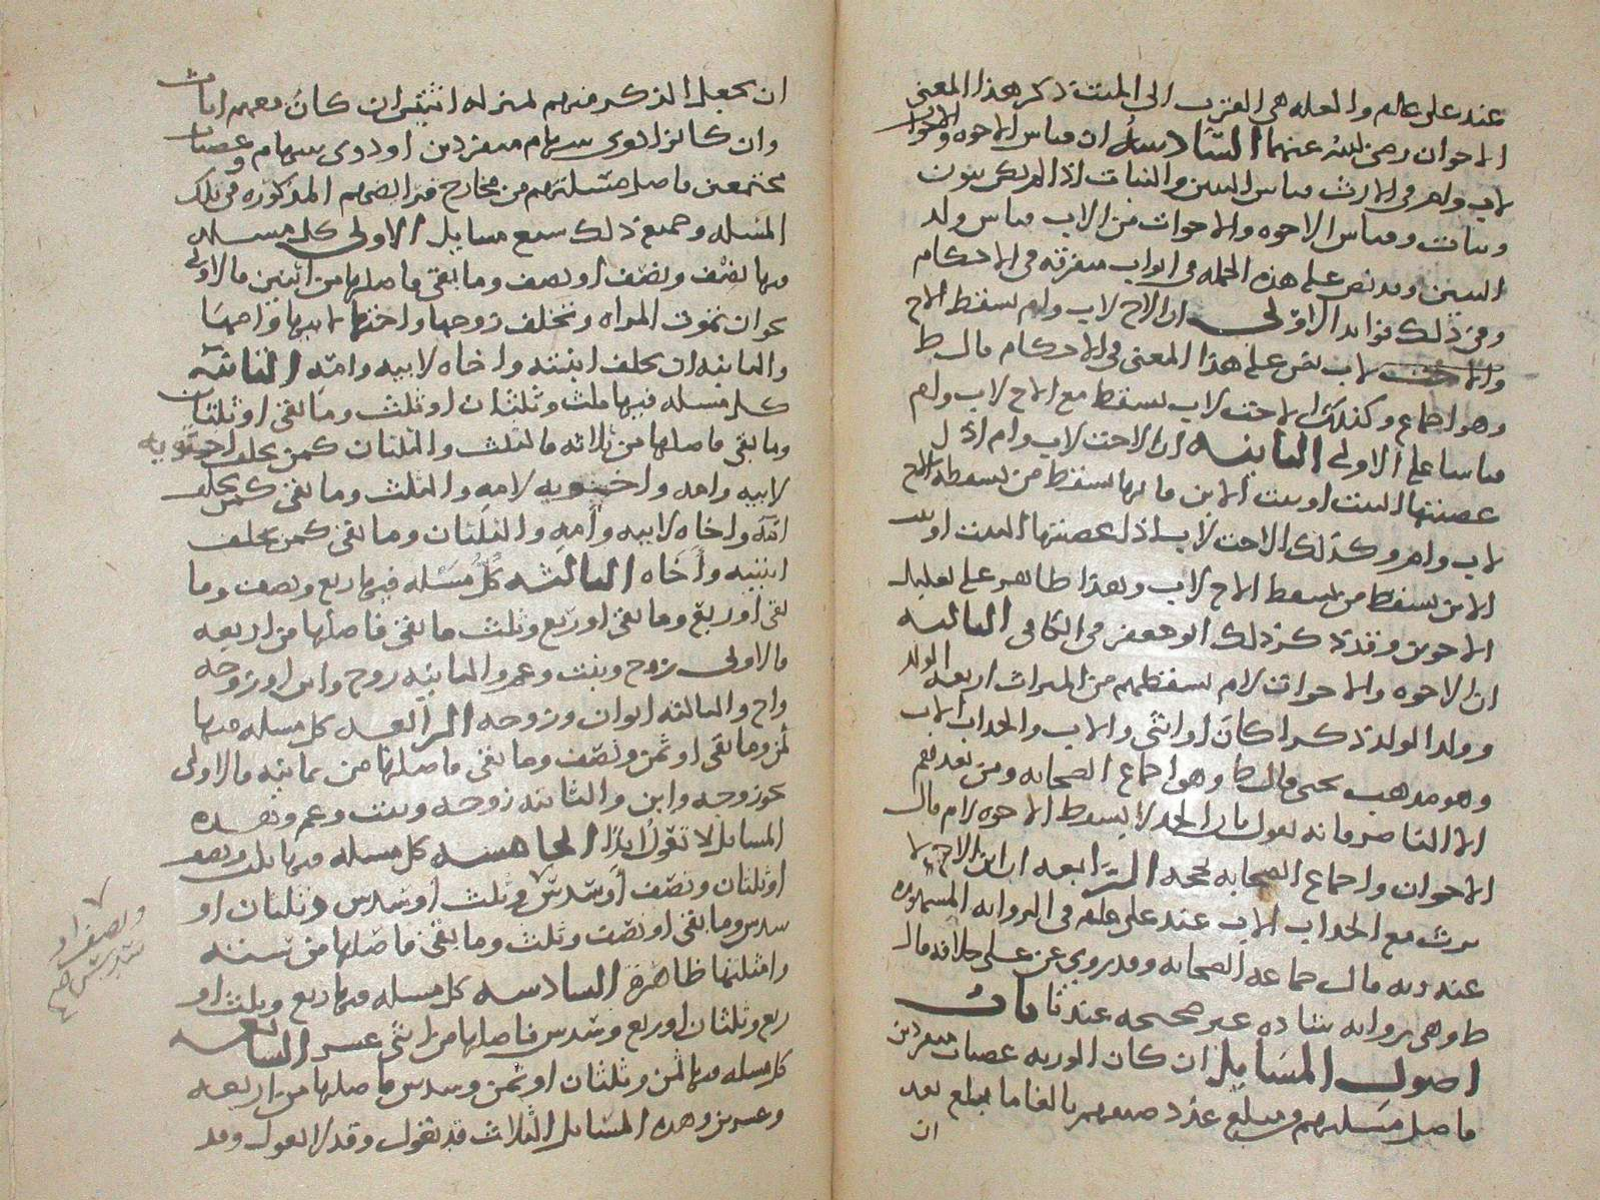 عند على عالم والعله هي القرب الى الميت ذكر هذا المعنى
الاخوان رضي الله عنهما السادسه ان ميراث الاخوه والاخوات
لاب وام في الارث ميراث البنين والبنات اذا لم يكن بنون
وبنات وميراث الاخوه والاخوات من الاب ميراث ولد
البنين وقد نص على هذه الجمله في ابواب متفرقه في الاحكام
وفي ذلك فوائد الاولى ان الاخ لاب وام يسقط الاخ
لاب نص على هذا المعنى في الاحكام قال ط
وهو اجماع وكذلك الاخت لاب تسقط مع الاخ لاب وام
قياسا على الاولى الثانيه ان الاخت لاب وام اذا
عصبتها البنت او بنت الابن فانها تسقط من يسقطه الاخ
لاب وام وكذلك الاخت لاب اذا عصبتها البنت او بنت
الابن تسقط من يسقط الاخ لاب وهذا ظاهر على تعليل
الاخوين وقد ذكر ذلك ابو جعفر في الكافي الثالثه
ان الاخوه والاخوات لام يسقطهم من الميراث اربعه الولد
وولد الولد ذكرا كان او انثى والاب والجد اب الاب
وهو مذهب يحيى قال ط وهو اجماع الصحابه ومن بعدهم
الا الناصر فانه يقول بان الجد لا يسقط الاخوه لام قال
الاخوان واجماع الصحابه يحجه الرابعه ان ابن الاخ لا
يرث مع الجد اب الاب عند علي عليلم في الروايه المشهوره
عند زيد قال جماعه الصحابه وقد روي عن علي خلافه قال
ط وهي روايه شاذه غير صحيحه عندنا باب
اصول المسايل ان كان الورثه عصبات منفردين
فاصل مسئلتهم مبلغ عدد صنفهم بالغا ما بلغ بعد
ان
ان يجعل الذكر منهم لمنزله انثيين ان كان معهم اناث
وان كانوا ذوي سهام منفردين او ذوي سهام وعصبات
مجتمعين فاصل مسئلتهم من مخارج فرايضهم المذكوره في تلك
المسله وجميع ذلك سبع مسايل الاولى كل مسله
فيها نصف ونصف او نصف وما بقي فاصلها من اثنين فالاولى
نحو ان تموت المراه وتخلف زوجها واختها لابيها وامها
والثانيه ان يخلف ابنته واخاه لابيه وامه الثانيه
كل مسله فيها ثلث وثلثان او ثلث وما بقي او ثلثان
وما بقي فاصلها من ثلاثه فالثلث والثلثان كمن يخلف اختويه
لابيه وامه واختويه لامه والثلث وما بقي كمن يخلف
امه واخاه لابيه وامه والثلثان وما بقي كمن يخلف
ابنتيه واخاه الثالثه كل مسله فيها ربع ونصف وما
بقي او ربع وما بقي او ربع وثلث ما بقي فاصلها من اربعه
فالاولى زوج وبنت وعم والثانيه زوج وابن او زوجه
واخ والثالثه ابوان وزوجه الرابعه كل مسله فيها
ثمن وما بقي او ثمن ونصف وما بقي فاصلها من ثمانيه فالاولى
نحو زوجه وابن والثانيه زوجه وبنت وعم وهذه
المسايل لا تعول ابدا الخامسه كل مسله فيها ثلث ونصف
او ثلثان ونصف او سدس وثلث او سدس وثلثان او
سدس وما بقي او نصف وثلث وما بقي فاصلها من سته
وامثلتها ظاهره السادسه كل مسله فيها ربع وثلث او
ربع وثلثان او ربع وسدس فاصلها من اثنى عشر السابعه
كل مسله فيها ثمن وثلثان او ثمن وسدس فاصلها من اربعه
وعشرين وهذه المسايل الثلاث قد تعول وقد لا تعول وقد
ونصف او
سدس